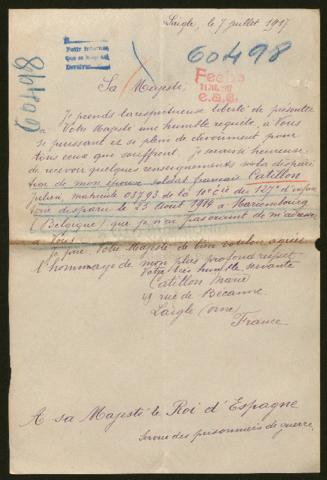 Laigle, le 7 juillet 1917
60498
60498
Fecha
Sa Majesté
Je prends la respectueuse liberté de présenter
à Votre Majesté une humble requête, à Vous
si puissant et si plein de dévouement pour
tous ceux qui souffrent. Je serais heureuse
de recevoir quelques renseignements sur la dispari
tion de mon époux soldat français Catillon
Julien, matricule 03793 de la 10e Cie du 127e d'infan
terie disparu le 25 août 1914 à Mariembourg
(Belgique) que je n'ai pas craint de m'adresser
à Vous.
Je prie Votre Majesté de bien vouloir agréer
l'hommage de mon plus profond respect
Votre très humble servante
Catillon Marie
41 rue de Bécanne
Laigle (Orne)
France
A sa Majesté le Roi d'Espagne
Service des prisonniers de guerre.